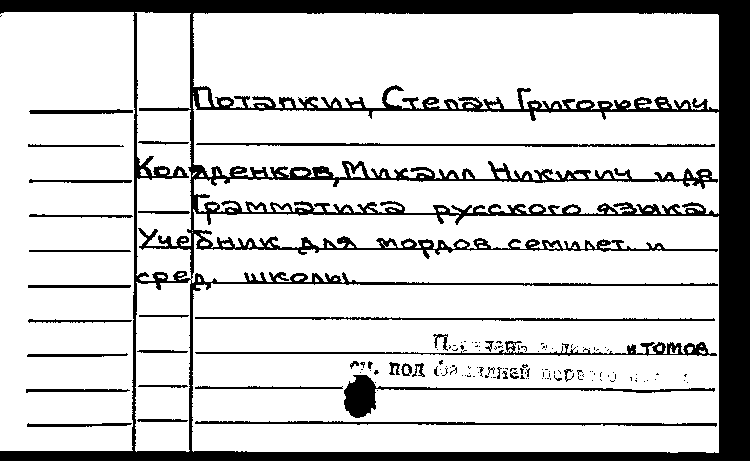 Потапкин, Степан Григорьевич.
Коляденков, Михаил Никитич и др
Грамматика русского языка.
Учебник для мордов. семилет. и
сред. школы.
и томов
см. под фамилией первого